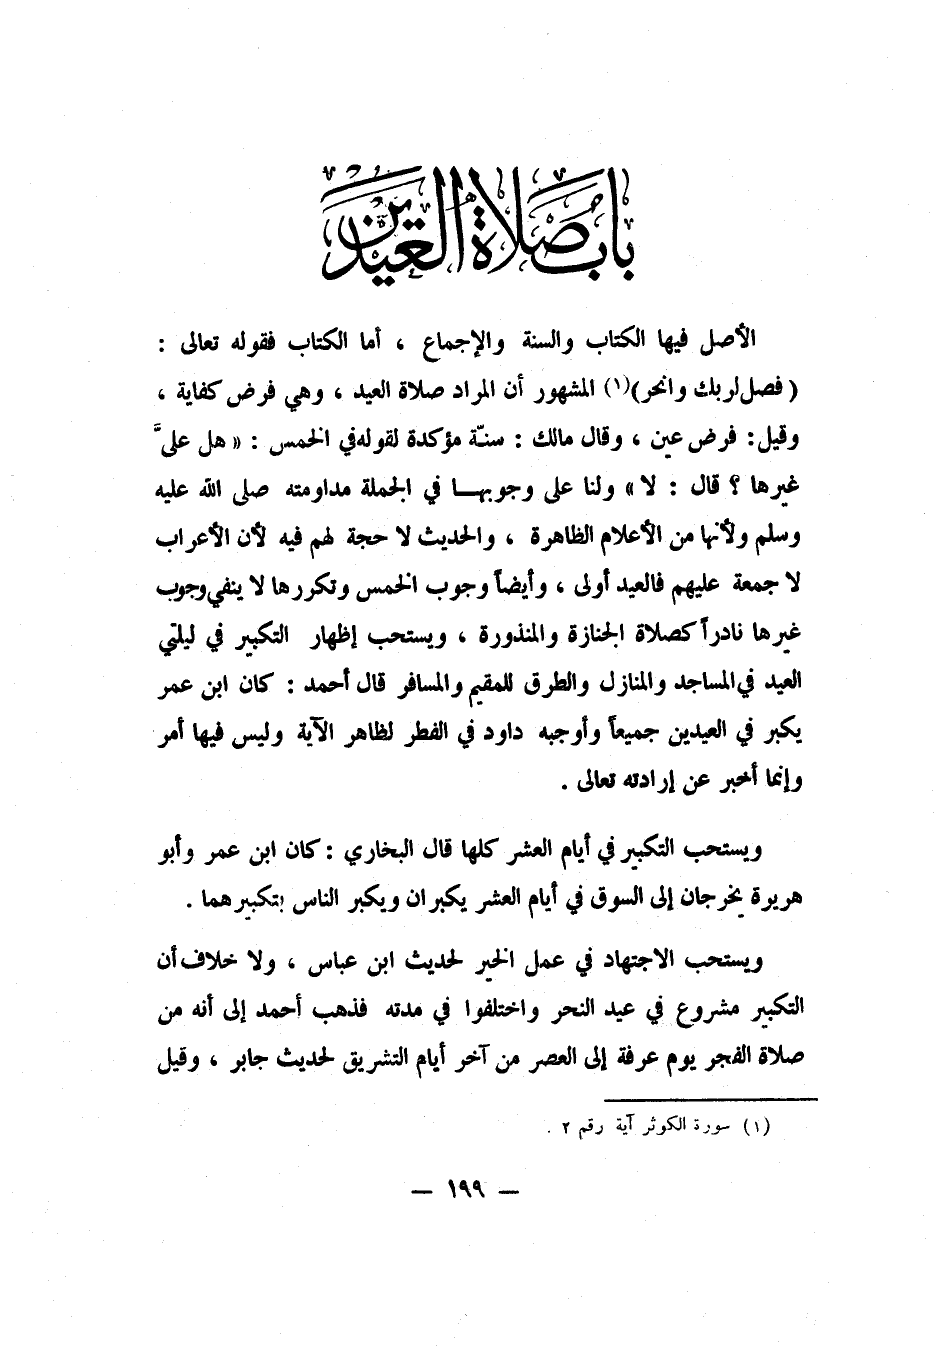 باب صلاة العيدين
الأصل فيها الكتاب والسنة والإجماع ، أما الكتاب فقوله تعالى :
( فصل لربك وانحر)(١) المشهور أن المراد صلاة العيد ، وهي فرض كفاية ،
وقيل: فرض عين ، وقال مالك : سنّة مؤكدة لقوله في الخمس : « هل عليَّ
غيرها ؟ قال : لا » ولنا على وجوبهـــا في الجملة مداومته صلى الله عليه
وسلم ولأنها من الأعلام الظاهرة ، والحديث لا حجة لهم فيه لأن الأعراب
لا جمعة عليهم فالعيد أولى ، وأيضاً وجوب الخمس وتكررها لا ينفي وجوب
غيرها نادراً كصلاة الجنازة والمنذورة ، ويستحب إظهار التكبير في ليلتي
العيد في المساجد والمنازل والطرق للمقيم والمسافر قال أحمد : كان ابن عمر
يكبر في العيدين جميعاً وأوجبه داود في الفطر لظاهر الآية وليس فيها أمر
وإنما أخبر عن إرادته تعالى .
ويستحب التكبير في أيام العشر كلها قال البخاري : كان ابن عمر وأبو
هريرة يخرجان إلى السوق في أيام العشر يكبران ويكبر الناس بتكبيرهما .
ويستحب الاجتهاد في عمل الخير لحديث ابن عباس ، ولا خلاف أن
التكبير مشروع في عيد النحر واختلفوا في مدته فذهب أحمد إلى أنه من
صلاة الفجر يوم عرفة إلى العصر من آخر أيام التشريق لحديث جابر ، وقيل
(١) سورة الكوثر آية رقم ٢ .
— ١٩٩ —